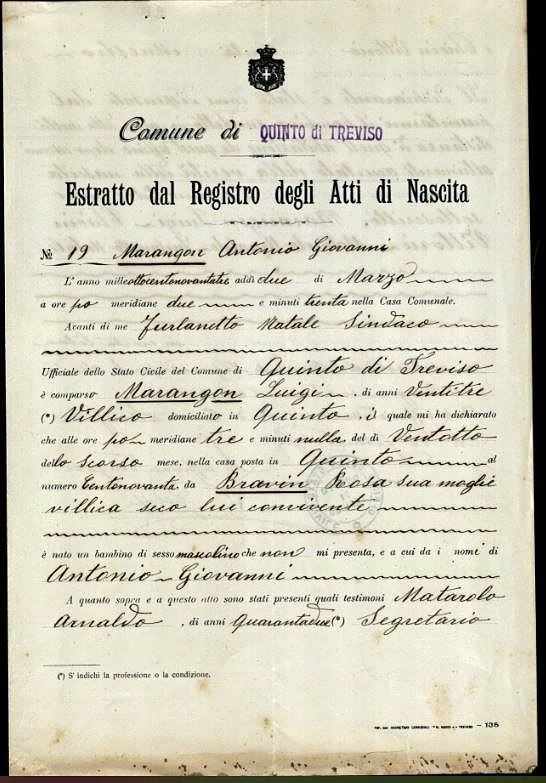 Comune di QUINTO di TREVISO
Estratto dal Registro degli Atti di Nascita
№ 19 Marangon Antonio Giovanni
L'anno milleottocentonovantatre addì due di Marzo
a ore po meridiane due e minuti trenta nella Casa Comunale.
Avanti di me Furlanetto Natale Sindaco
Ufficiale dello Stato Civile del Comune di Quinto di Treviso
è comparso Marangon Luigi, di anni Ventitre
(*) Villico domiciliato in Quinto, il quale mi ha dichiarato
che alle ore po meridiane tre e minuti nulla del dì Ventotto
dello scorso mese, nella casa posta in Quinto al
numero Centonovanta da Bravin Rosa sua moglie
villica seco lui convivente
è nato un bambino di sesso mascolino che non mi presenta, e a cui da i nomi di
Antonio Giovanni
A quanto sopra e a questo atto sono stati presenti quali testimoni Matarolo
Arnaldo, di anni Quarantadue (*) Segretario
(*) S'indichi la professione o la condizione.
— 138